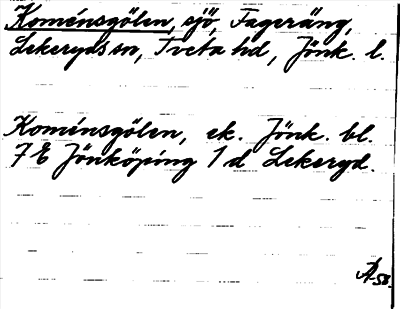 Koménsgölen, sjö, Fageräng,
Lekeryds sn, Tveta hd, Jönk. l.
Koménsgölen, ek. Jönk. bl.
7E Jönköping 1d Lekeryd.